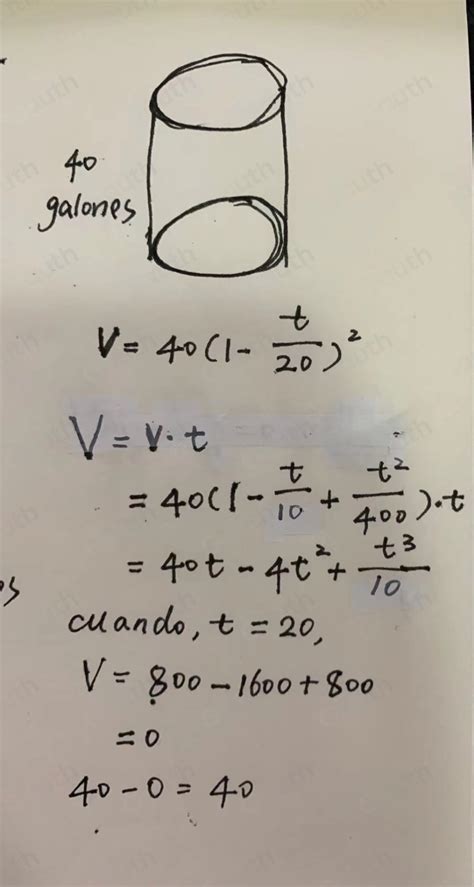 40
galones
V = 40(1 - t/20)²
V = v · t
= 40(1 - t/10 + t²/400) · t
= 40t - 4t² + t³/10
os
cuando, t = 20,
V = 800 - 1600 + 800
= 0
40 - 0 = 40